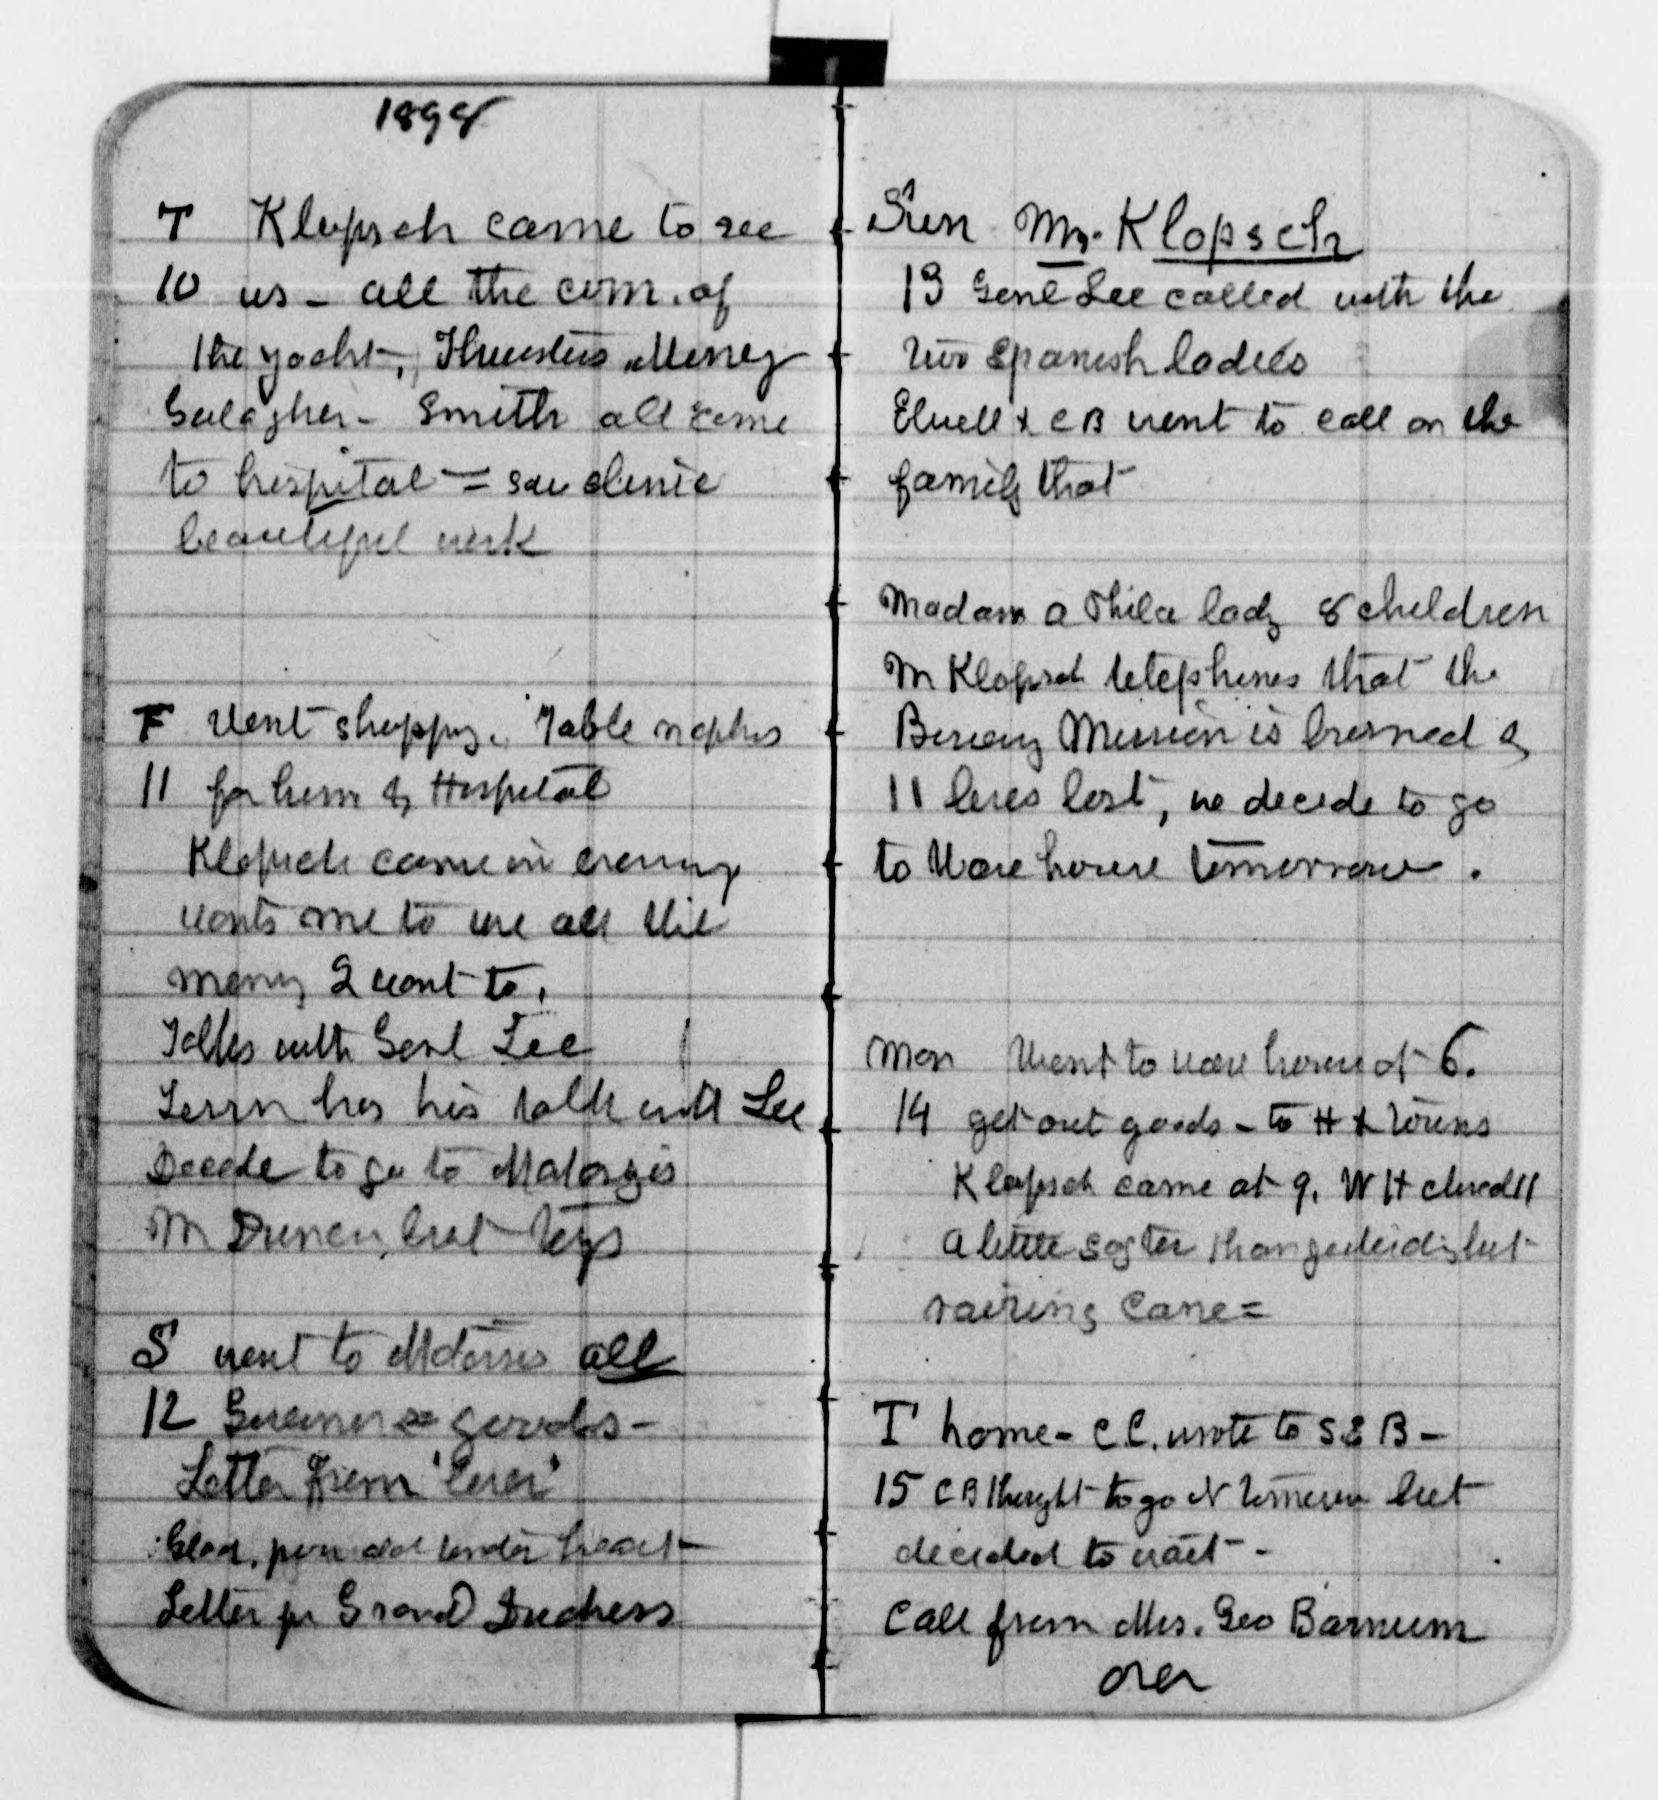 1898
T Klopsch came to see
10 us - all the com. of
the yacht, Thurstons, Money
Galagher - Smith all came
to hospital = saw clinic
beautiful work
F Went shopping. Table napkins
11 for home & Hospital
Klopsch came in evening
wants me to use all the
money I want to.
Talks with Genl Lee
has his talk with Lee
Decide to go to Matanzis
M lost keys
S went to all
12 goods -
Letter from
tender heart
Letter fr Grand Duchess
Sun Mr. Klopsch
13 Genl Lee called with the
two Spanish ladies
Elwell & CB went to call on the
family that
Madam a Phila lady 8 children
M Klopsch telephones that the
Bowery Mission is burned &
11 lives lost, we decide to go
to Ware house tomorrow.
Mon Went to ware house at 6.
14 get out goods - to H & towns
Klopsch came at 9. W H closed 11
a little but
raising Cane =
T home - C C. wrote to S E B -
15 CB thought to go N tomorrow but
decided to wait -
Call from Mrs. Geo Barnum
over